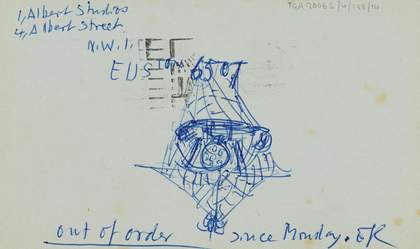 1, Albert Studios
4, Albert Street
N.W.1.
EUSton 6507
out of order since Monday. EK